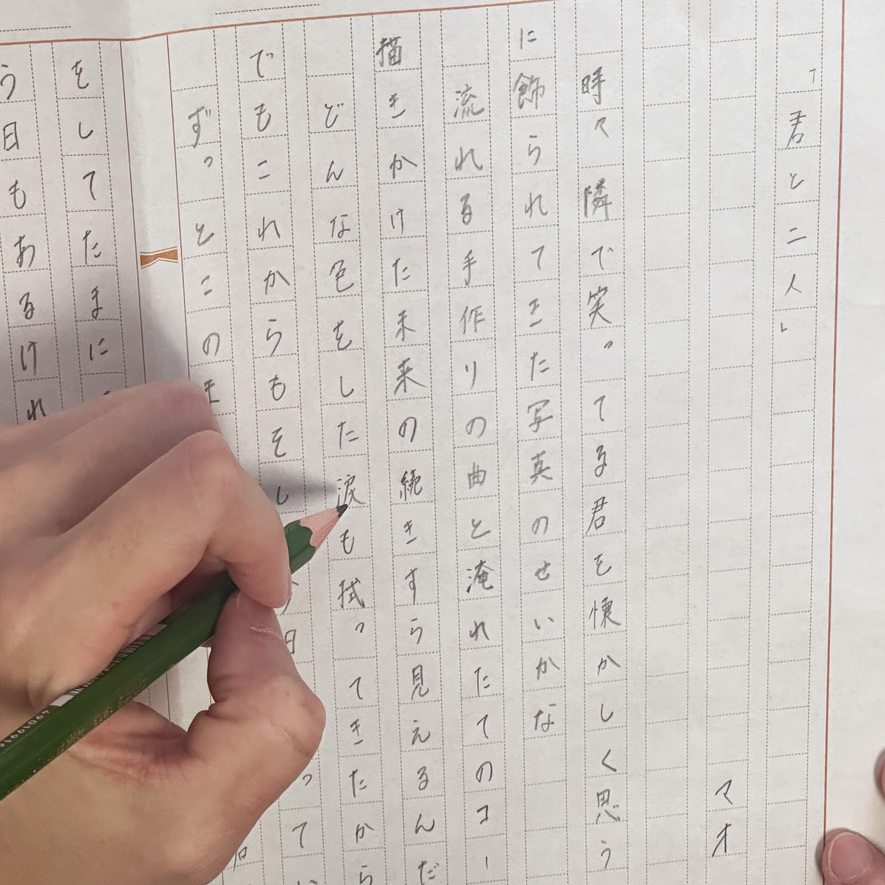 「君と二人」
マオ
時々隣で笑ってる君を懐かしく思う
に飾られてきた写真のせいかな
流れる手作りの曲と淹れたてのコー
描きかけた未来の続きすら見えるんだ
どんな色をした涙も拭ってきたから
でもこれからもそし 日って
ずっとこのま
をしてたまに
う日もあるけれ